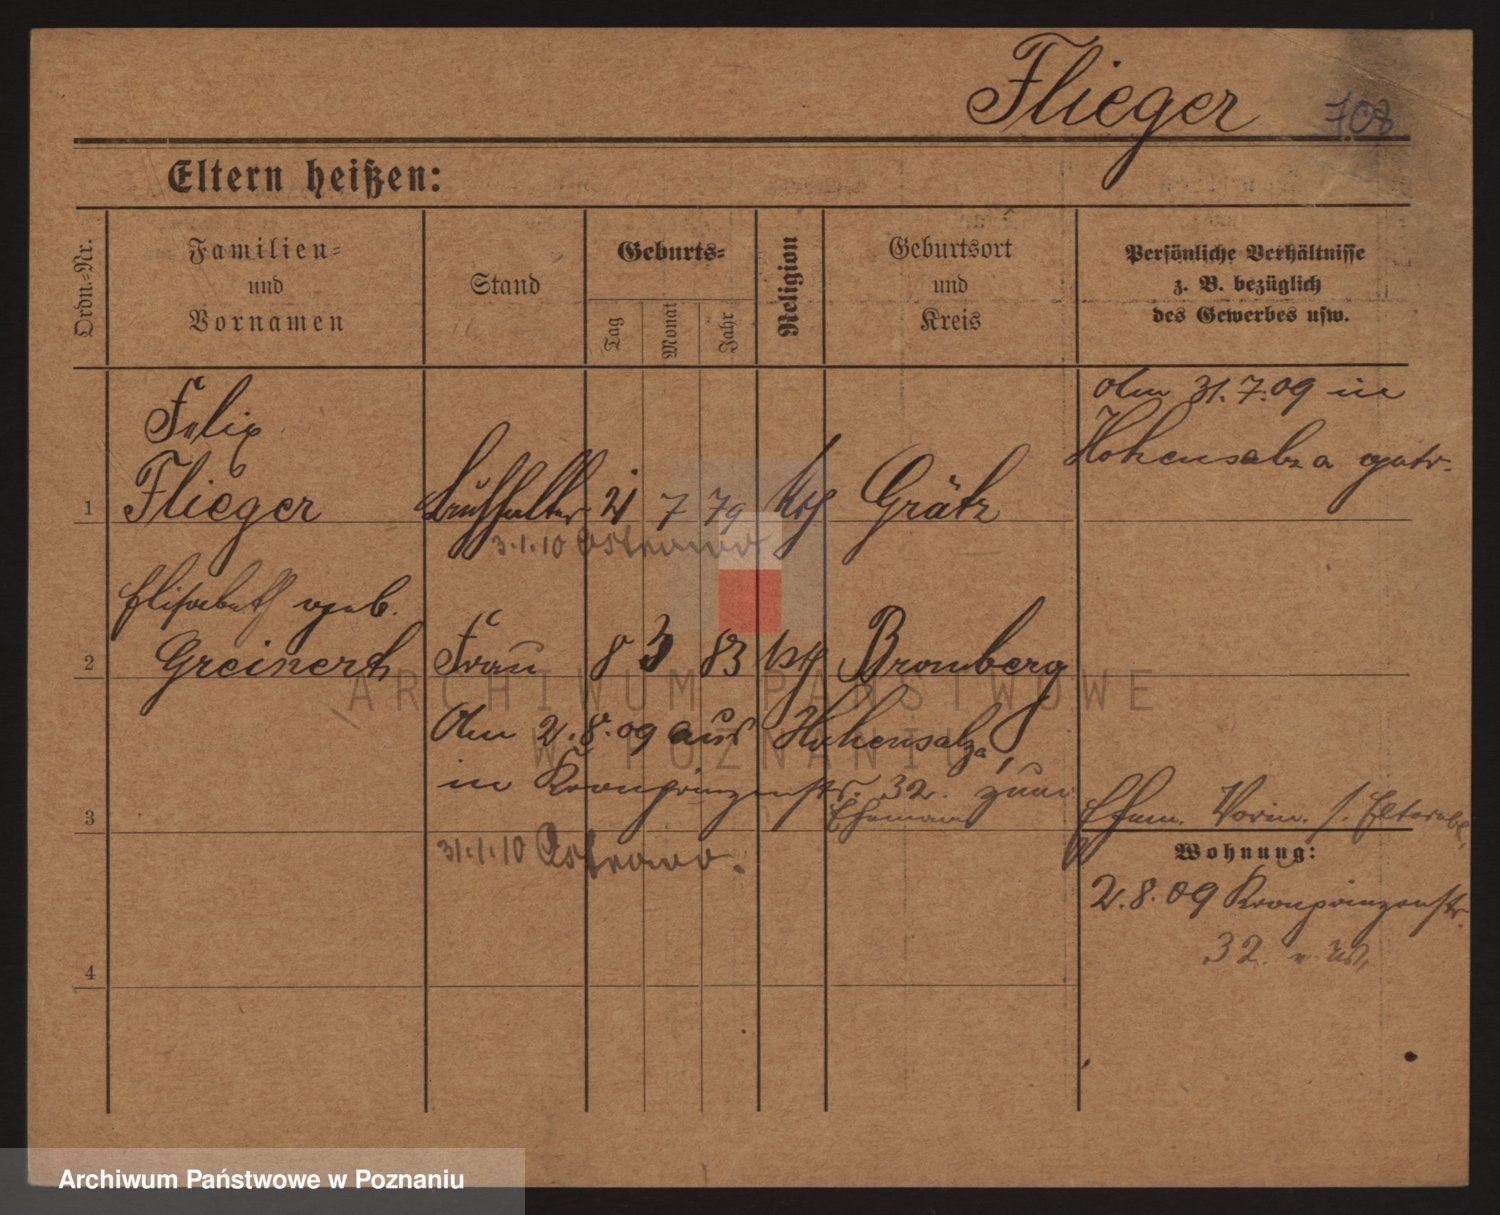 Flieger 708
Eltern heißen:
Ordn.-Nr.
Familien-
und
Vornamen
Stand
Geburts-
Tag
Monat
Jahr
Religion
Geburtsort
und
Kreis
Persönliche Verhältnisse
z. B. bezüglich
des Gewerbes usw.
Am 31.7.09 in
Hohensalza getr.
Felix
1 Flieger Buchhalter 21 7 79 kth Grätz
31.1.10 Ostrowo
Elisabeth geb.
2 Greinert Frau 8 3 83 kth Bromberg
ARCHIWUM PAŃSTWOWE
W POZNANIU
Am 2.8.09 aus Hohensalza,
in Kronprinzenstr. 32. zum
Ehemann
3
Ehem. Vorm. s.
31.1.10 Ostrowo.
Wohnung:
2.8.09 Kronprinzenstr.
32.
4
Archiwum Państwowe w Poznaniu